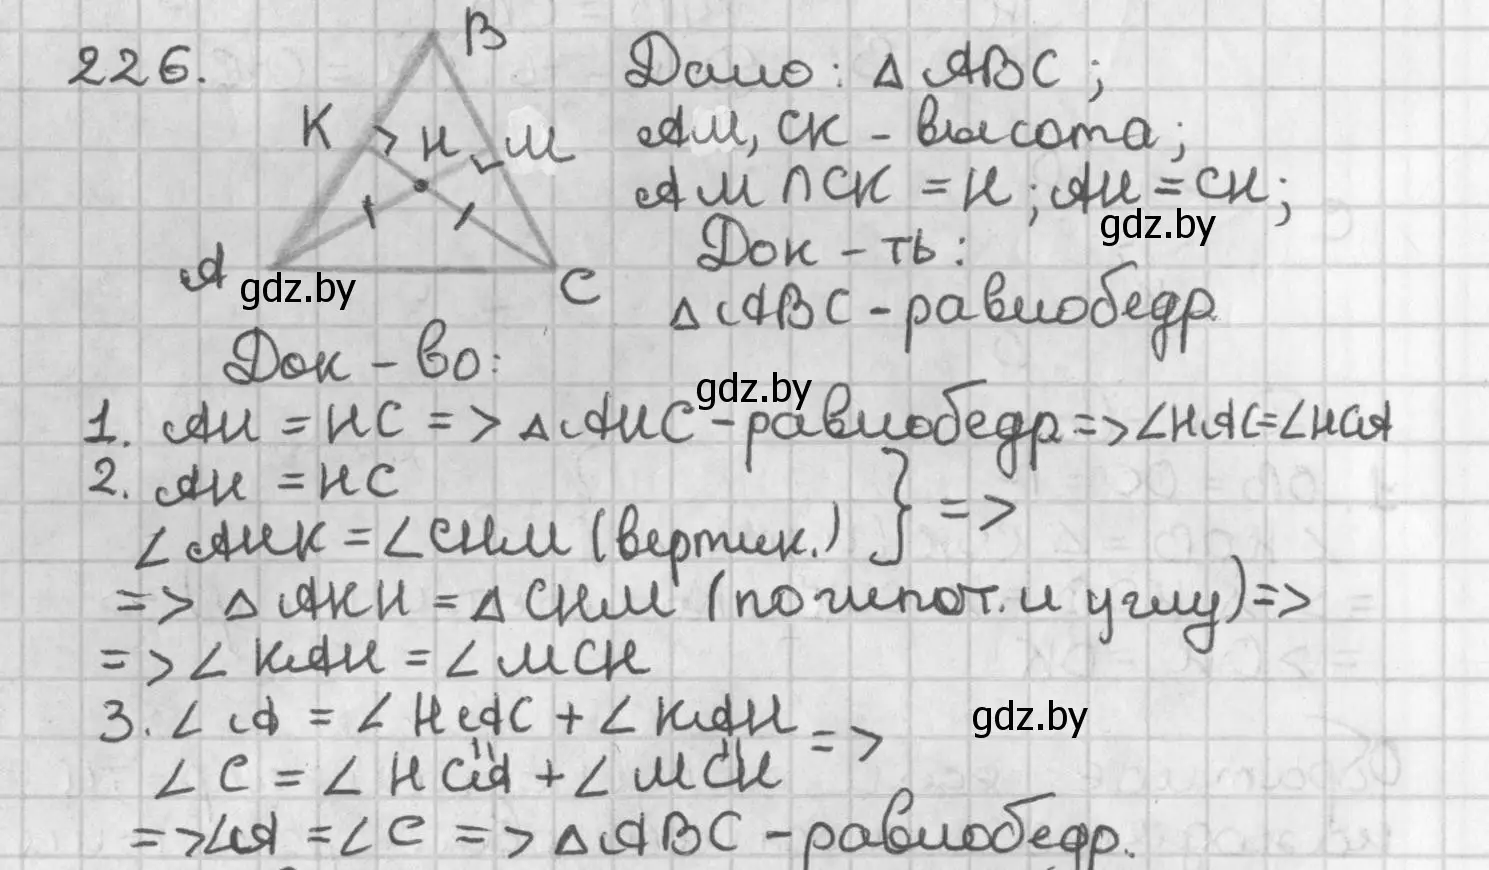 226.
B
K
H
M
A
C
Дано: △ ABC ;
AM, CK - высота;
AM ∩ CK = H ; AH = CH;
gdz.by
gdz.by
Док - ть:
△ ABC - равнобедр.
Док - во:
gdz.by
1. AH = HC => △ AHC - равнобедр => ∠HAC=∠HCA
2. AH = HC
∠AHK = ∠CHM (вертик.) } =>
=> △ AKH = △ CHM (по гипот. и углу) =>
=> ∠ KAH = ∠ MCH
3. ∠ A = ∠ HAC + ∠ KAH
gdz.by
∠ C = ∠ HCA + ∠ MCH =>
=> ∠A = ∠ C => △ ABC - равнобедр.